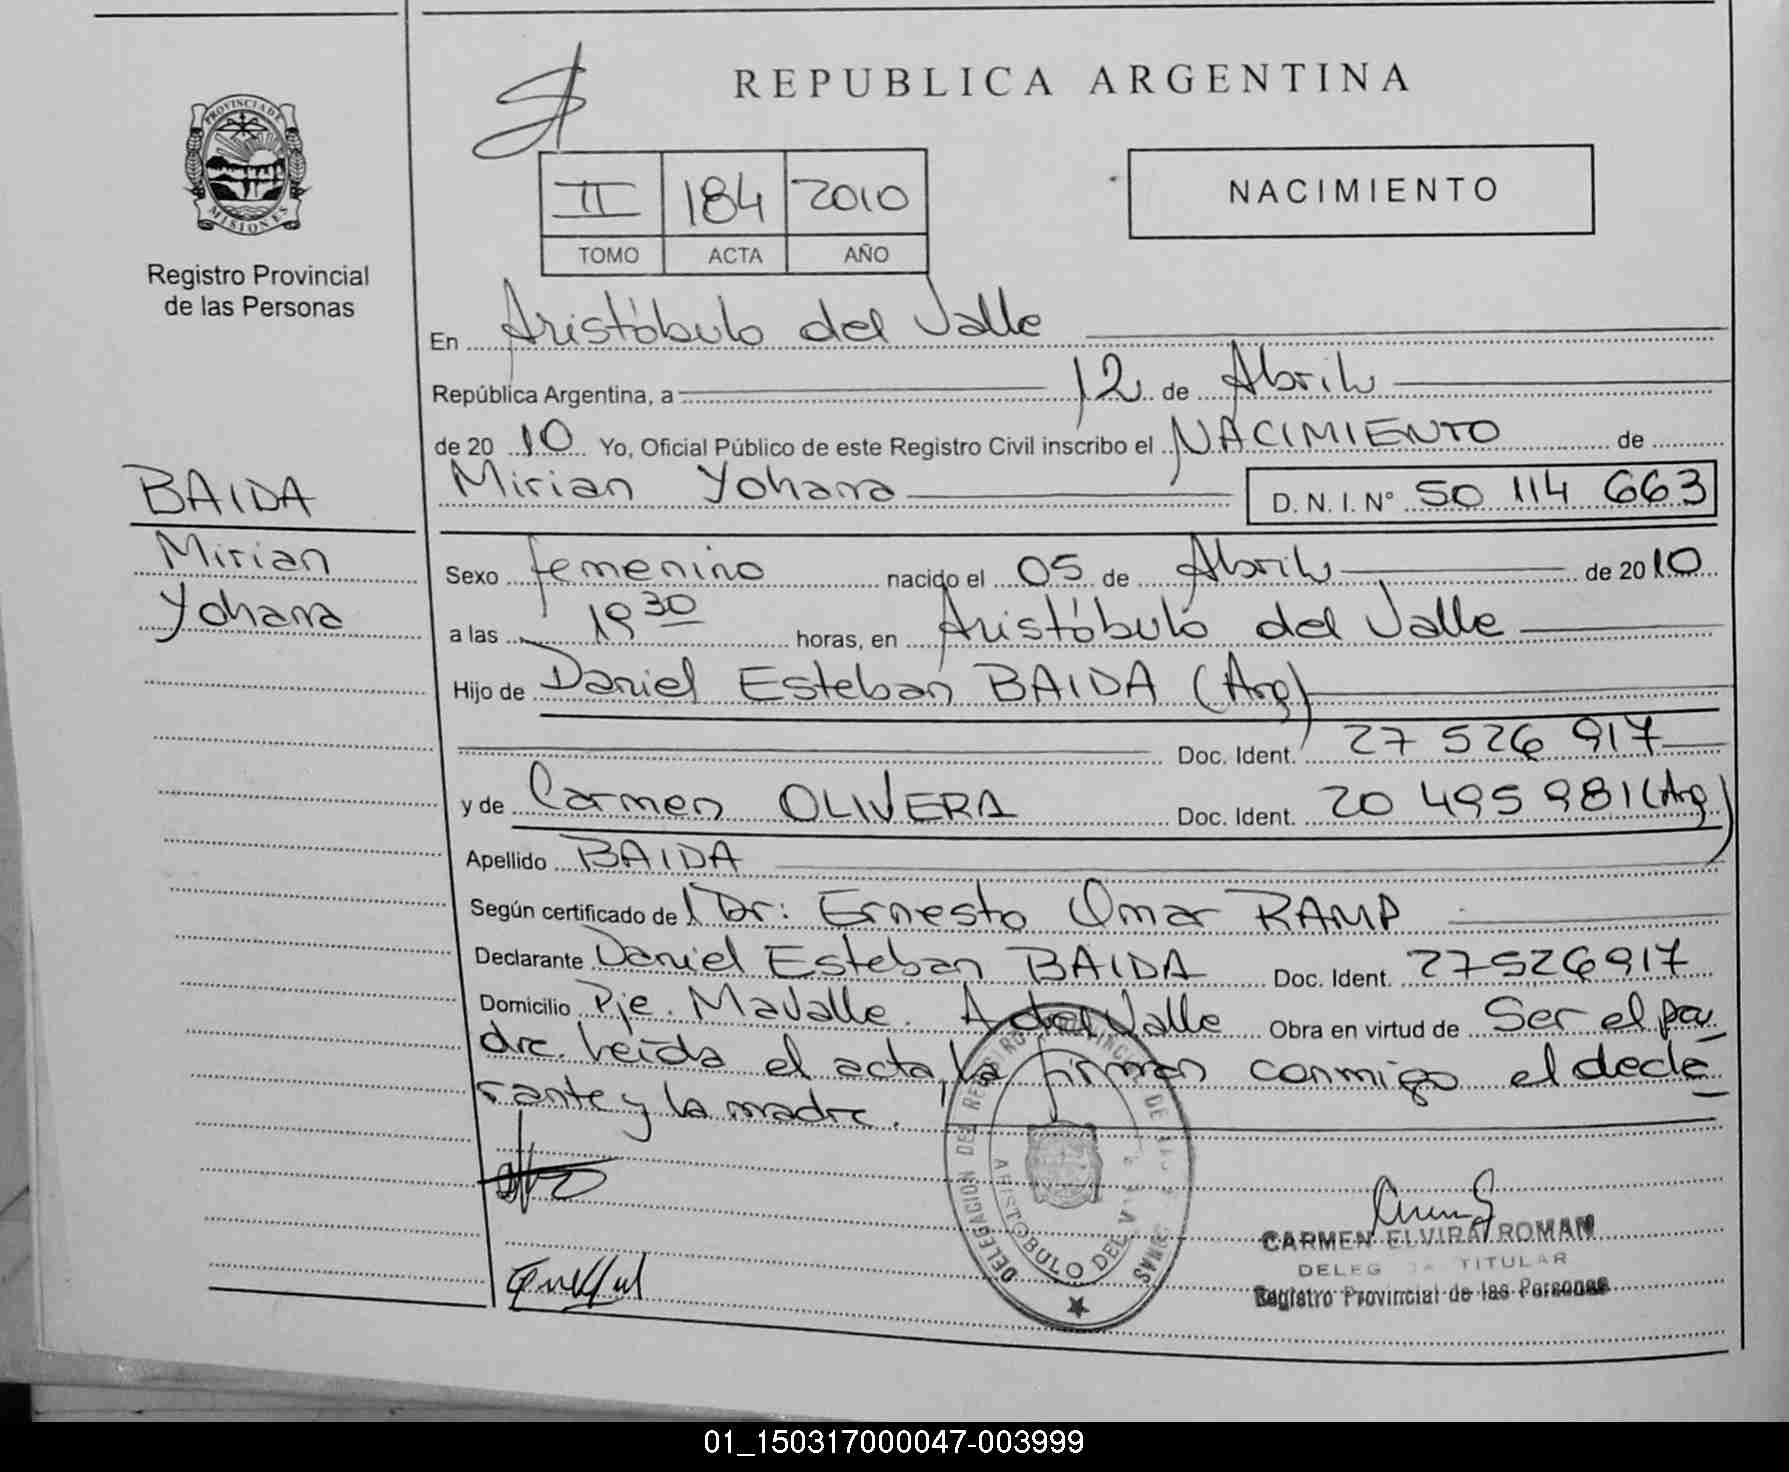 REPUBLICA ARGENTINA
PROVINCIA DE
MISIONES
Registro Provincial
de las Personas
II 184 2010
TOMO ACTA AÑO
NACIMIENTO
En Aristóbulo del Valle
República Argentina, a 12 de Abril
de 2010 Yo, Oficial Público de este Registro Civil inscribo el NACIMIENTO de
Mirian Yohana D. N. I. N° 50 114 663
BAIDA
Mirian
Yohana
Sexo femenino nacido el 05 de Abril de 2010
a las 19 30 horas, en Aristóbulo del Valle
Hijo de Daniel Esteban BAIDA (Arg)
Doc. Ident. 27 526 917
y de Carmen OLIVERA Doc. Ident. 20 495 981 (Arg)
Apellido BAIDA
Según certificado de Dr: Ernesto Omar RAMP
Declarante Daniel Esteban BAIDA Doc. Ident. 27526917
Domicilio Pje. Mavalle. A del Valle Obra en virtud de Ser el pa
dre. Leída el acta, la firman conmigo el decla
rante y la madre.
DELEGACION DEL REGISTRO PROVINCIAL DE LAS
ARISTOBULO DEL VALLE
CARMEN ELVIRA ROMAN
TITULAR
Registro Provincial de las Personas
01_150317000047-003999